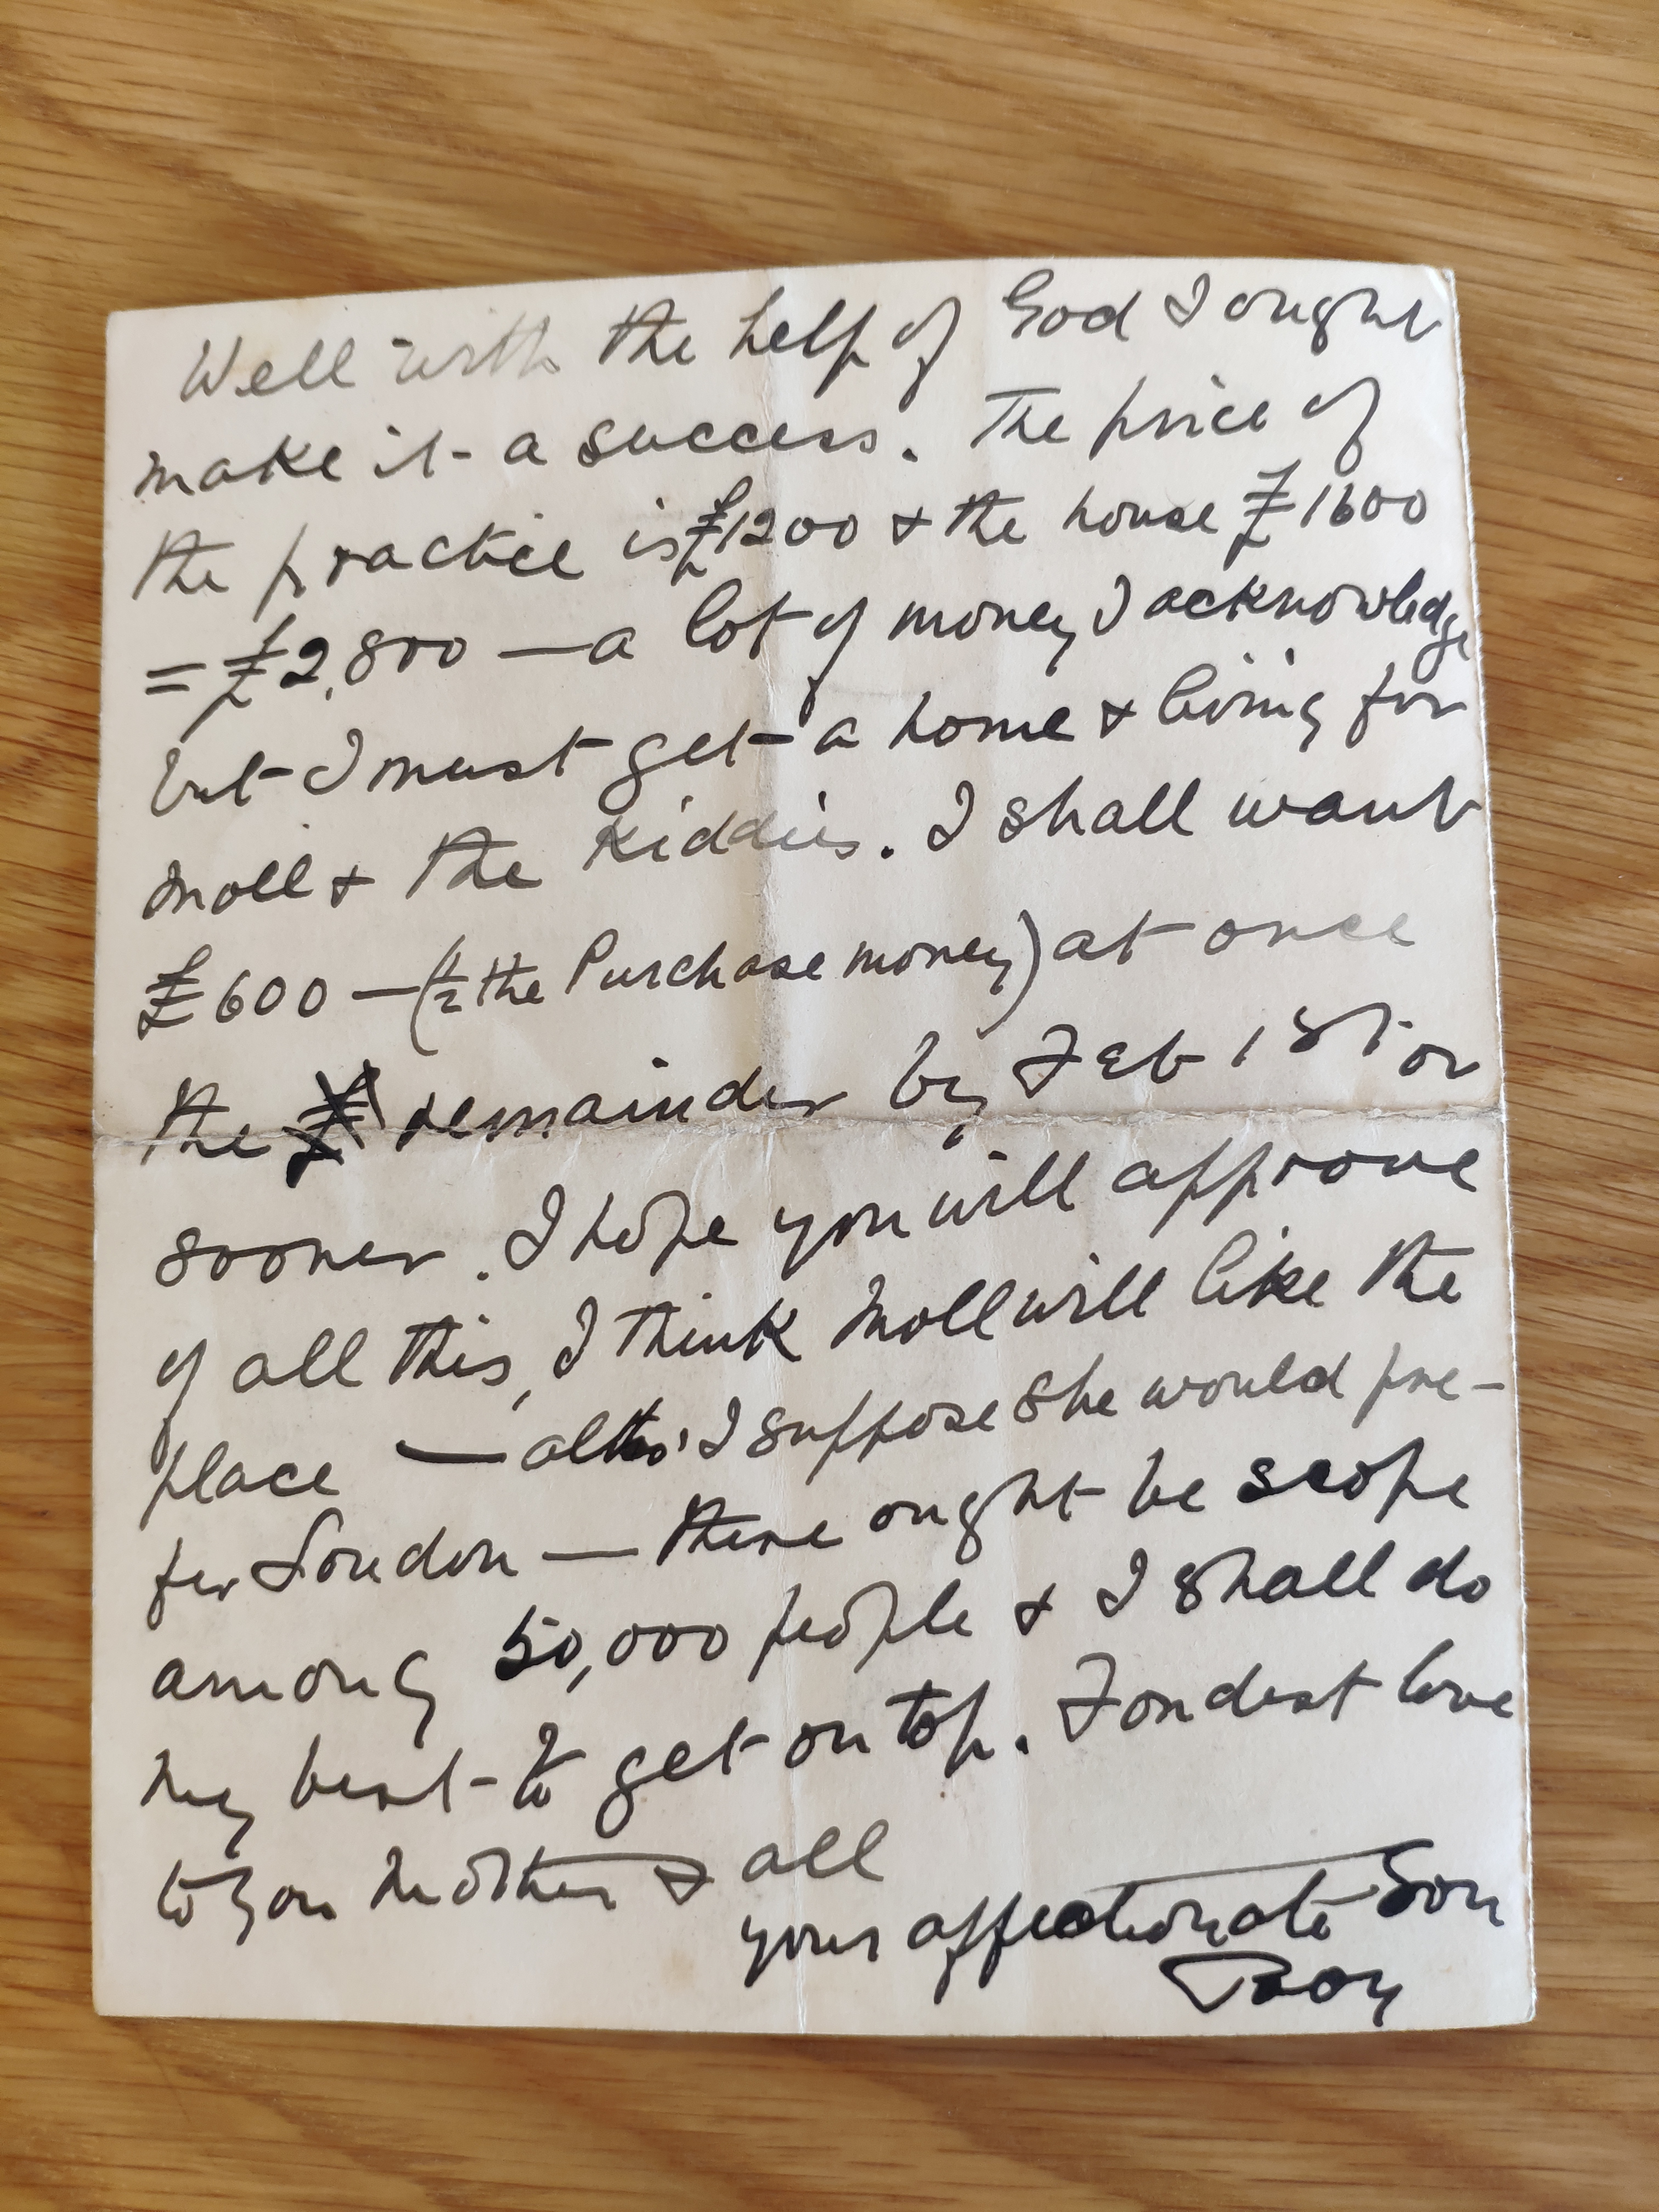 Well with the help of God I ought
make it a success. The price of
the practice is £1200 & the house £1600
= £2,800 — a lot of money I acknowledge
but I must get a home & living for
Moll & the Kiddies. I shall want
£600 — (½ the Purchase money) at once
the remainder by Feb 1st or
sooner. I hope you will approve
of all this, I think Moll will like the
place — altho' I suppose she would pre-
fer London — there ought be scope
among 50,000 people & I shall do
my best to get on top. Fondest love
to you Mother & all
your affectionate Son